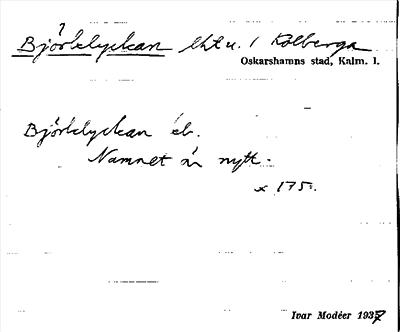 ?
Björklyckan lht u. / Kolberga
Oskarshamns stad, Kalm. l.
Björklyckan eb.
Namnet är nytt.
x 175.
Ivar Modéer 1937